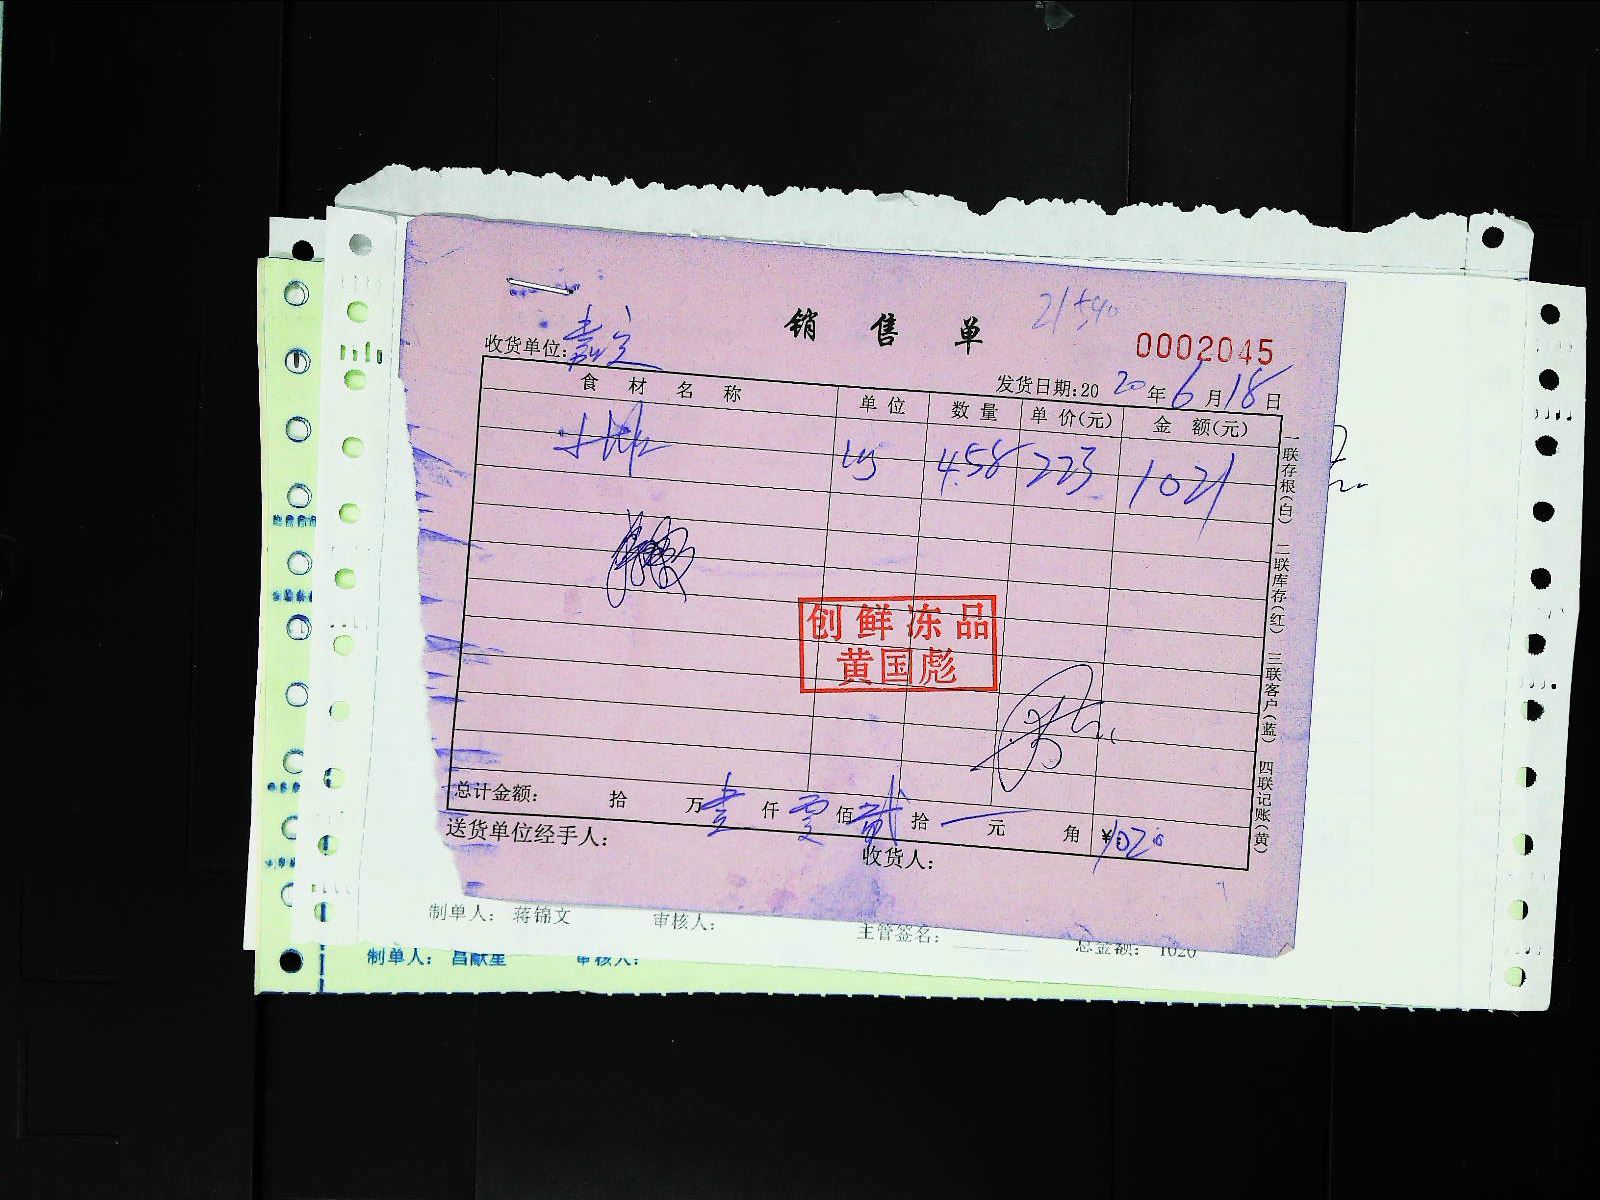 销 售 单
0002045
收货单位: 嘉定
发货日期:2020年6月18日
食 材 名 称 单 位 数 量 单 价(元) 金 额(元)
小排 4.58 223 1021
创鲜冻品
黄国彪
总计金额: 拾 万壹仟零佰贰拾一元 角 ¥:1020
送货单位经手人: 收货人:
一联存根(白) 二联库存(红) 三联客户(蓝) 四联记账(黄)
制单人: 蒋锦文 审核人: 主管签名: 总金额: 1020
制单人: 昌献星 审核人: